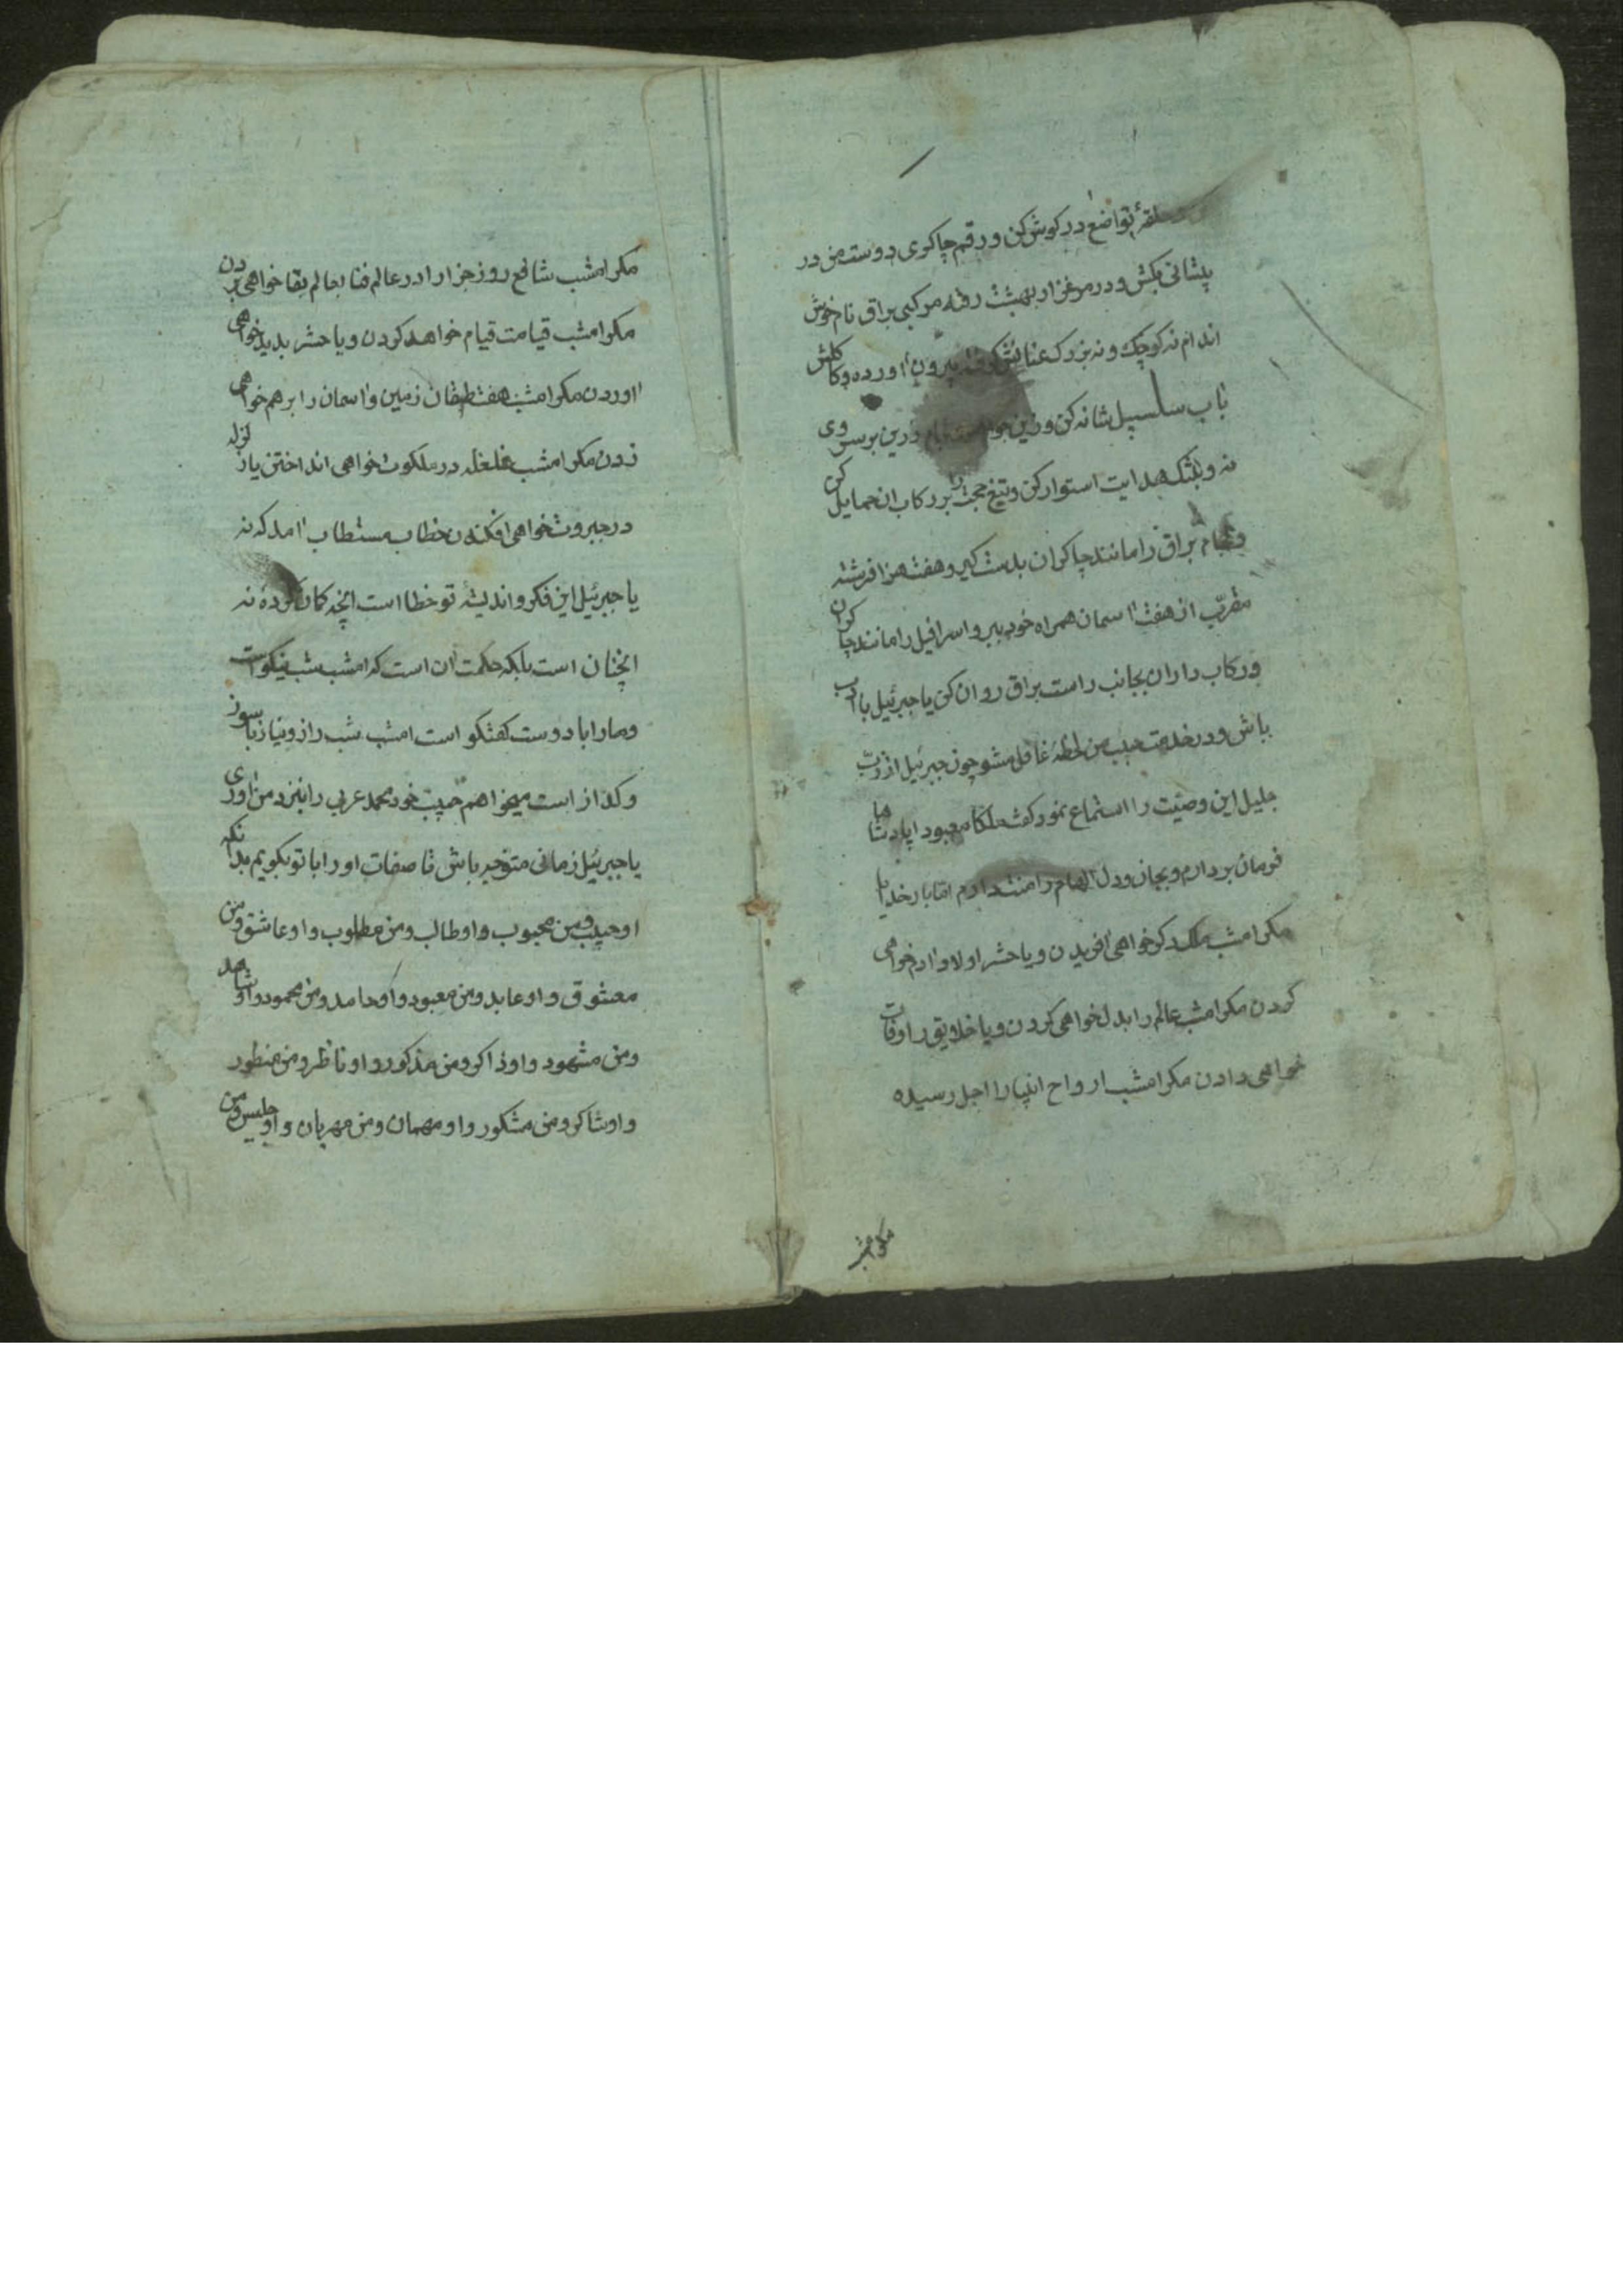 حلقهٔ تواضع در کوش کن و رقم چاکری دوست من در
پیشانی بکش و در مرغزار بهشت رفته مرکبی براق نام خوش
اندام نه کوچک و نه بزرک عنانش کرفته بیرون اورده و کاکلش
باب سلسبیل شانه کن و زین درین بر سر وی
نه و بتنک هدایت استوار کن و تیغ حجت را بر رکاب ان حمایل کن
و لجام براق را مانند چاکران بدست کیر و هفت هزا فرشته
مقرّب از هفت اسمان همراه خود ببر و اسرافیل را مانند چاکران
و رکاب داران بجانب راست براق روان کن یا جبرئیل با ادب
باش و در خدمت حبیب من لحظهٔ غافل مشو چون جبرئیل از ربّ
جلیل این وصیّت را استماع نمود کفت ملکا معبودا پادشاها
فرمان بردارم و بجان و دل الهام را منت دارم امّا بار خدایا
مکر امشب ملک دکر خواهی افریدن و یا حشر اولاد ادم خواهی
کردن مکر امشب عالم را بدل خواهی کردن و یا خلایق را وفات
خواهی دادن مکر امشب ارواح انبیا را اجل رسیده
مکر امشب
مکر امشب شافع روز جزا را در عالم فنا بعالم بقا خواهی بردن
مکر امشب قیامت قیام خواهد کردن و یا حشر بدید خواهی
اوردن مکر امشب هفت طبقان زمین و اسمان را برهم خواهی
زدن مکر امشب غلغله در ملکوت خواهی انداختن یا زلزله
در جبروت خواهی افکندن خطاب مستطاب امد که نه
یا جبرئیل این فکر و اندیشهٔ تو خطا است انچه کمان کردهٔ نه
انچنان است بلکه حکمت ان است که امشب شب نیکو است
و ما را با دوست کفتکو است امشب شب راز و نیاز با سوز
و کداز است میخواهم حبیب خود محمد عربی را بنزد من اوری
یا جبرئیل زمانی متوجه باش تا صفات او را با تو بکویم بدانکه
او حبیب و من محبوب و او طالب و من مطلوب و او عاشق و من
معشوق و او عابد و من معبود و او حامد و من محمود و او شاهد
و من مشهود و او ذاکر و من مذکور و او ناظر و من منظور
و او شاکر و من مشکور و او مهمان و من مهربان و او جلیس و من